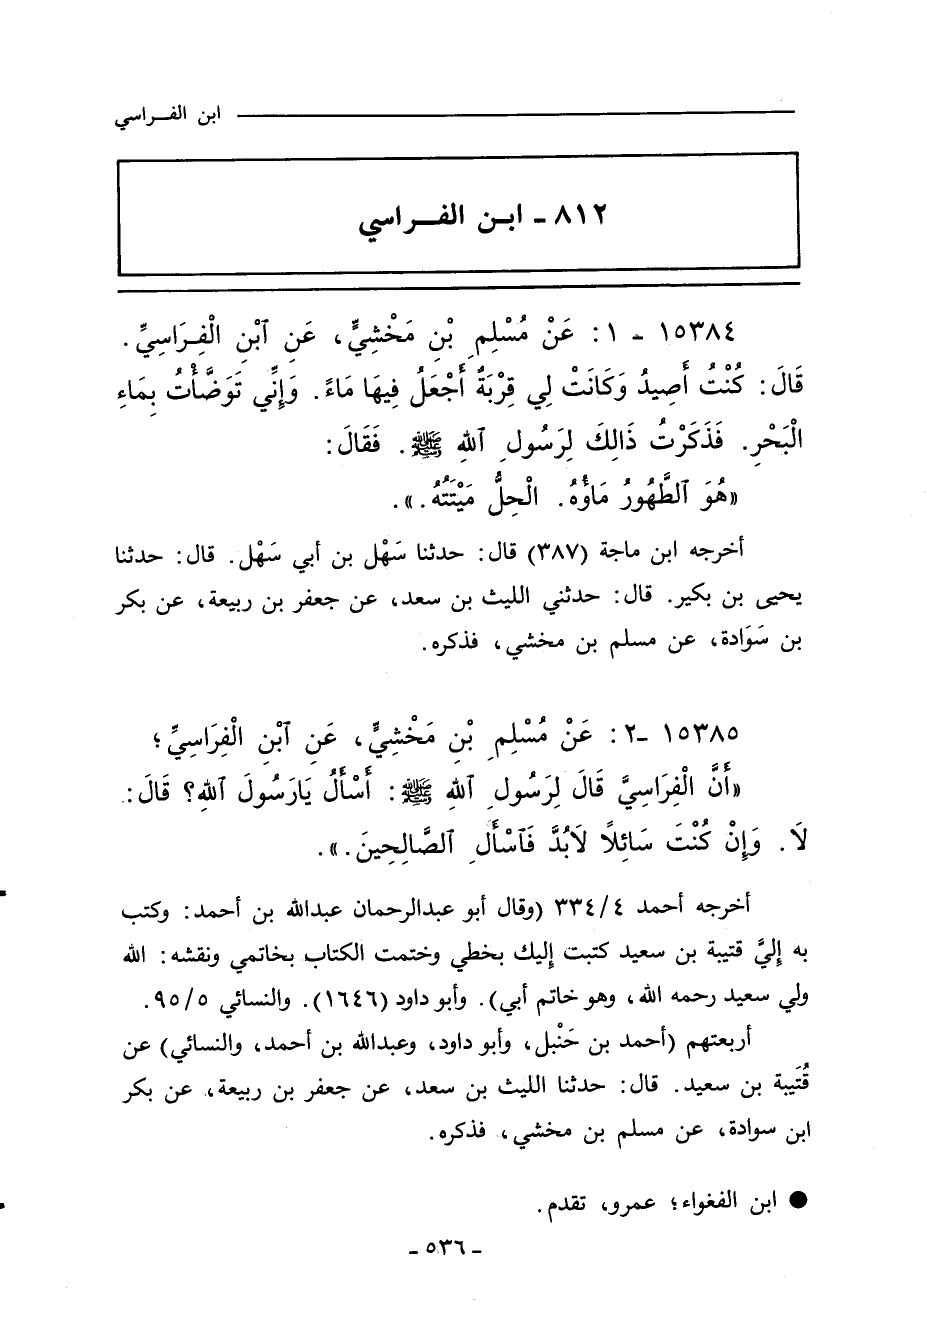 ابن الفـراسي
٨١٢ ـ ابـن الفـــراسي
١٥٣٨٤ ـ ١: عَنْ مُسْلِمِ بْنِ مَخْشِيٍّ، عَنِ ٱبْنِ الْفِـرَاسِيِّ.
قَالَ: كُنْتُ أَصِيدُ وَكَانَتْ لِي قِرْبَةٌ أَجْعَلُ فِيهَا مَاءً. وَإِنِّي تَوَضَّأْتُ بِمَاءِ
الْبَحْرِ. فَذَكَرْتُ ذَالِكَ لِرَسُولِ ٱللهِ ﷺ. فَقَالَ:
«هُوَ ٱلطَّهُورُ مَاؤُهُ. الْحِلُّ مَيْتَتُهُ.».
أخرجه ابن ماجة (٣٨٧) قال: حدثنا سَهْل بن أبي سَهْل. قال: حدثنا
يحيى بن بكير. قال: حدثني الليث بن سعد، عن جعفر بن ربيعة، عن بكر
بن سَوَادة، عن مسلم بن مخشي، فذكره.
١٥٣٨٥ ـ٢: عَنْ مُسْلِمِ بْنِ مَخْشِيٍّ، عَنِ ٱبْنِ الْفِرَاسِيِّ؛
«أَنَّ الْفِرَاسِيَّ قَالَ لِرَسُولِ ٱللهِ ﷺ: أَسْأَلُ يَارَسُولَ ٱللهِ؟ قَالَ:
لَا. وَإِنْ كُنْتَ سَائِلًا لَابُدَّ فَٱسْأَلِ ٱلصَّالِحِينَ.».
أخرجه أحمد ٣٣٤/٤ (وقال أبو عبدالرحمان عبدالله بن أحمد: وكتب
به إِليَّ قتيبة بن سعيد كتبت إليك بخطي وختمت الكتاب بخاتمي ونقشه: الله
ولي سعيد رحمه الله، وهو خاتم أبي). وأبو داود (١٦٤٦). والنسائي ٩٥/٥.
أربعتهم (أحمد بن حَنْبل، وأبو داود، وعبدالله بن أحمد، والنسائي) عن
قُتَيبة بن سعيد. قال: حدثنا الليث بن سعد، عن جعفر بن ربيعة، عن بكر
ابن سوادة، عن مسلم بن مخشي، فذكره.
● ابن الفغواء؛ عمرو، تقدم.
ـ ٥٣٦ ـ